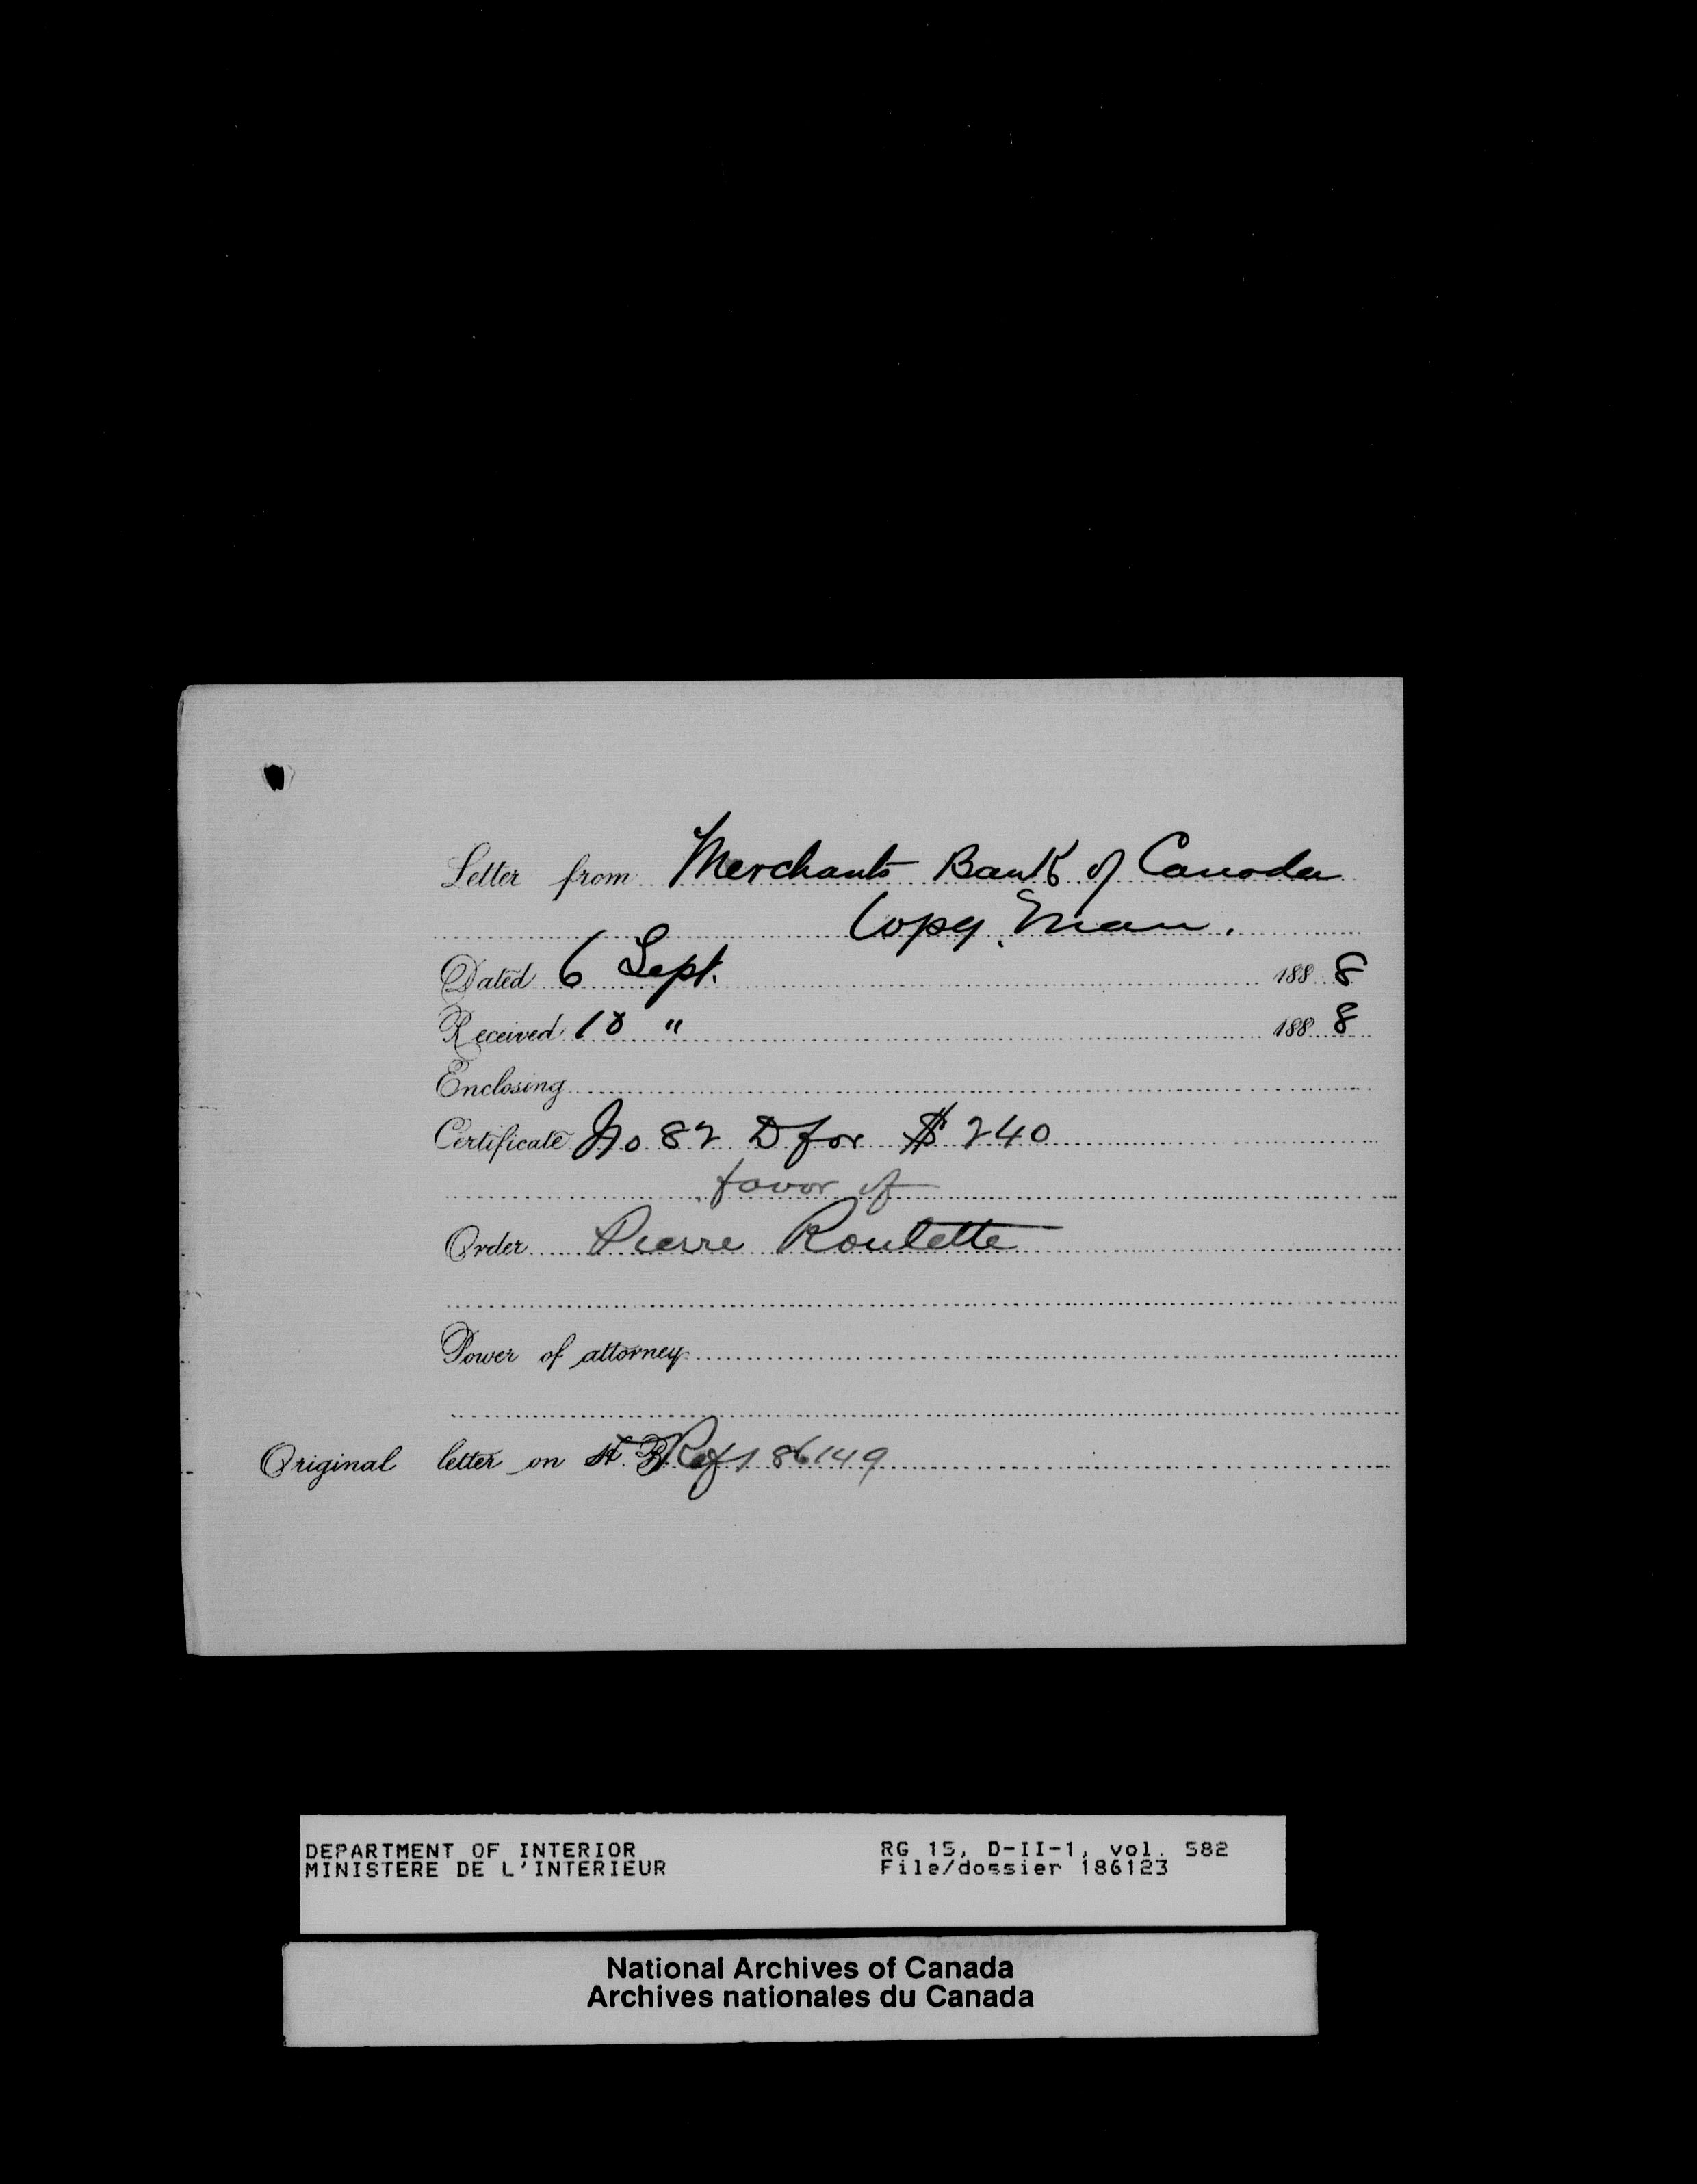 Letter from Merchants Bank of Canada
Wpg. Man.
Dated 6 Sept. 1888
Received 10 " 1888
Enclosing
Certificate No 82 D for $ 240
favor of
Order Pierre Roulette
Power of attorney
Original letter on Ref 186149
DEPARTMENT OF INTERIOR
MINISTERE DE L'INTERIEUR
RG 15, D-II-1, vol. 582
File/dossier 186123
National Archives of Canada
Archives nationales du Canada